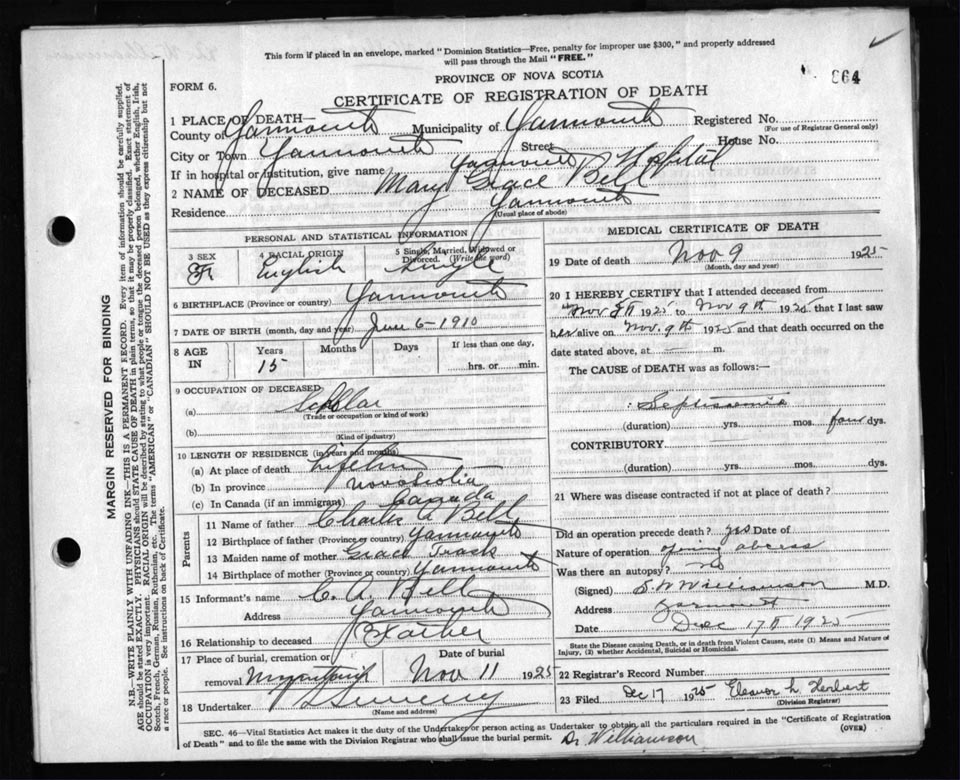 This form if placed in an envelope, marked "Dominion Statistics—Free, penalty for improper use $300," and properly addressed
will pass through the Mail "FREE."
864
PROVINCE OF NOVA SCOTIA
FORM 6.
CERTIFICATE OF REGISTRATION OF DEATH
1 PLACE OF DEATH—
County of Yarmouth Municipality of Yarmouth Registered No.
(For use of Registrar General only)
City or Town Yarmouth Street House No.
If in hospital or institution, give name Yarmouth Hospital
2 NAME OF DECEASED Mary Grace Bell
Residence Yarmouth
(Usual place of abode)
PERSONAL AND STATISTICAL INFORMATION
3 SEX F
4 RACIAL ORIGIN English
5 Single, Married, Widowed or Divorced. (Write the word) Single
6 BIRTHPLACE (Province or country) Yarmouth
7 DATE OF BIRTH (month, day and year) June 6—1910
8 AGE IN Years 15 Months Days If less than one day, hrs. or min.
9 OCCUPATION OF DECEASED
(a) Scholar
(Trade or occupation or kind of work)
(b)
(Kind of industry)
10 LENGTH OF RESIDENCE (in years and months)
(a) At place of death Lifetime
(b) In province Nova Scotia
(c) In Canada (if an immigrant) Canada
Parents
11 Name of father Charles A Bell
12 Birthplace of father (Province or country) Yarmouth
13 Maiden name of mother Grace
14 Birthplace of mother (Province or country) Yarmouth
15 Informant's name C. A. Bell
Address Yarmouth
16 Relationship to deceased Father
17 Place of burial, cremation or removal Date of burial Nov 11 1925
18 Undertaker
(Name and address)
MEDICAL CERTIFICATE OF DEATH
19 Date of death Nov 9 1925
(Month, day and year)
20 I HEREBY CERTIFY that I attended deceased from
Nov 1925 to Nov 9th 1925 that I last saw
her alive on Nov. 9th 1925 and that death occurred on the
date stated above, at — m.
The CAUSE of DEATH was as follows:—
Septicaemia
(duration) yrs. mos. four dys.
CONTRIBUTORY
(duration) yrs. mos. dys.
21 Where was disease contracted if not at place of death?
Did an operation precede death? yes Date of
Nature of operation opening abcess
Was there an autopsy? no
(Signed) Williamson M.D.
Address Yarmouth
Date Dec 17th 1925
State the Disease causing Death, or in death from Violent Causes, state (1) Means and Nature of
Injury, (2) whether Accidental, Suicidal or Homicidal.
22 Registrar's Record Number
23 Filed Dec 17 1925 Eleanor L. Herbert
(Division Registrar)
SEC. 46—Vital Statistics Act makes it the duty of the Undertaker or person acting as Undertaker to obtain all the particulars required in the "Certificate of Registration
of Death" and to file the same with the Division Registrar who shall issue the burial permit.
(OVER)
Dr Williamson
MARGIN RESERVED FOR BINDING
N.B.—WRITE PLAINLY WITH UNFADING INK—THIS IS A PERMANENT RECORD. Every item of information should be carefully supplied.
AGE should be stated EXACTLY. PHYSICIANS should STATE CAUSE OF DEATH in plain terms, so that it may be properly classified. Exact statement of
OCCUPATION is very important. RACIAL ORIGIN will be described by stating to what people or tongue the deceased person belonged, whether English, Irish,
Scotch, French, German, Russian, Ruthenian, etc. The terms "AMERICAN" or "CANADIAN" SHOULD NOT BE USED as they express citizenship but not
a race or people. See instructions on back of Certificate.